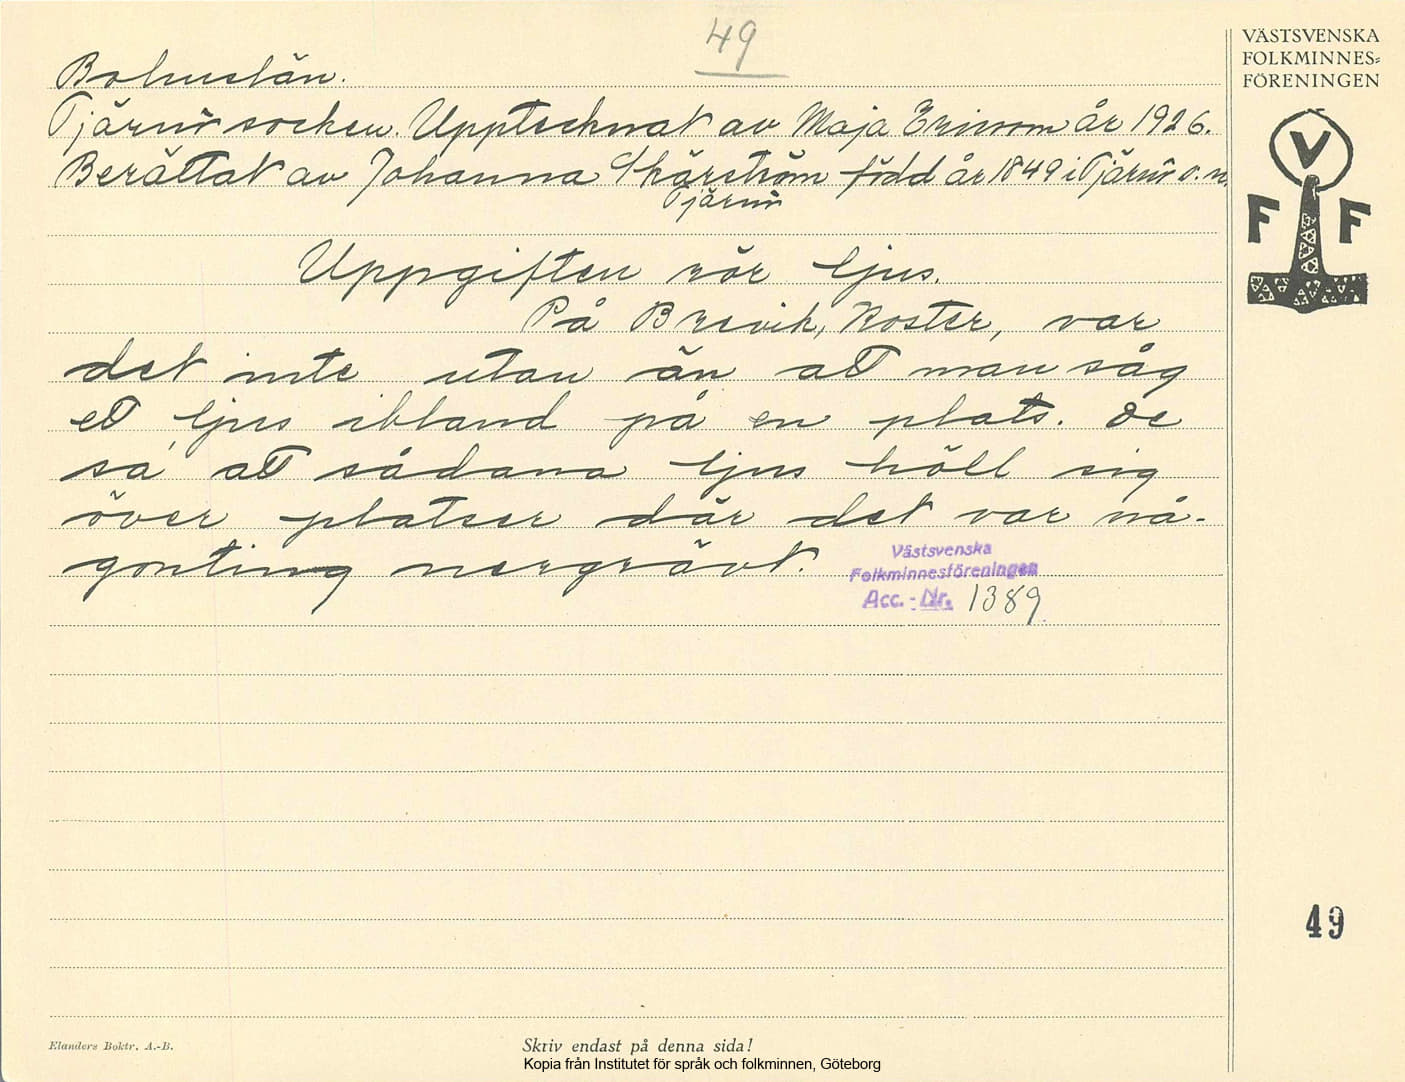 49
VÄSTSVENSKA
FOLKMINNES-
FÖRENINGEN
Bohuslän.
Tjärnö socken. Upptecknat av Maja Ericson år 1926.
Berättat av Johanna Skärström född år 1849 i Tjärnö s. n.
Tjärnö
Uppgiften rör ljus.
På Brevik, Koster, var
det inte utan än att man såg
ett ljus ibland på en plats. De
sa att sådana ljus höll sig
över platser där det var nå-
gonting nergrävt.
Västsvenska
Folkminnesföreningen
Acc. - Nr. 1389
V
F F
49
Elanders Boktr. A.-B.
Skriv endast på denna sida!
Kopia från Institutet för språk och folkminnen, Göteborg